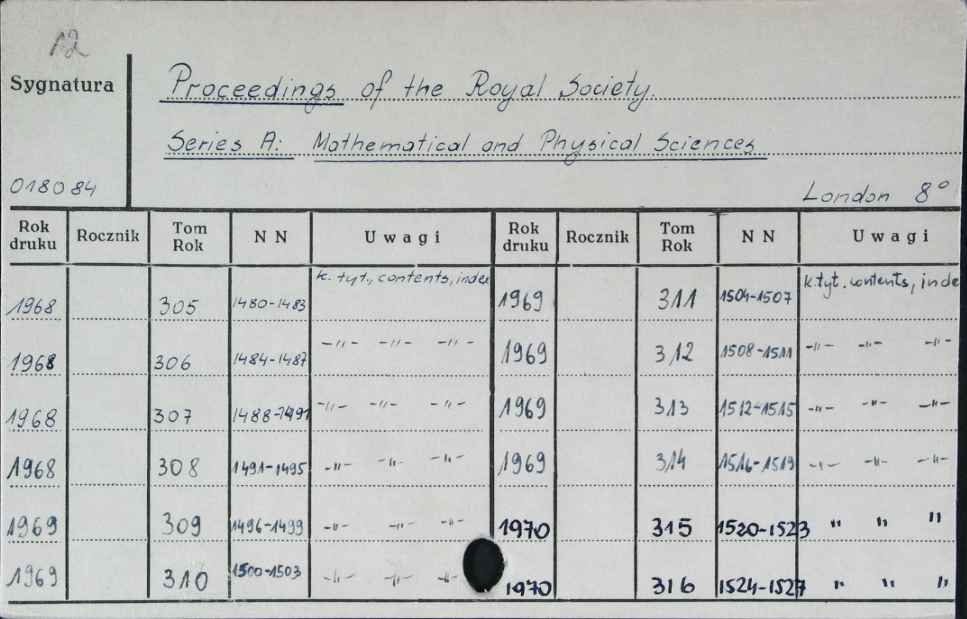 12
Sygnatura
Proceedings of the Royal Society.
Series A: Mathematical and Physical Sciences
018084
London 8°
Rok druku Rocznik Tom Rok N N Uwagi Rok druku Rocznik Tom Rok N N Uwagi
k. tyt., contents, inde k.tyt. contents, inde
1968 305 1480-1483 1969 311 1504-1507
1968 306 1484-1487 -"- -"- -"- 1969 312 1508-1511 -"- -"- -"-
1968 307 1488-1491 -"- -"- -"- 1969 313 1512-1515 -"- -"- -"-
1968 308 1491-1495 -"- -"- -"- 1969 314 1516-1519 -"- -"- -"-
1969 309 1496-1499 -"- -"- -"- 1970 315 1520-1523 " " "
1969 310 1500-1503 -"- -"- -"- 1970 316 1524-1527 " " "